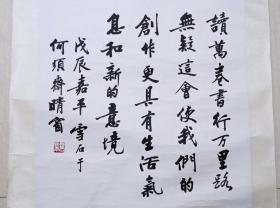 讀萬卷書行万里路
無疑這會使我們的
創作更具有生活氣
息和新的意境
戊辰嘉平雪石于
何須齋晴窗